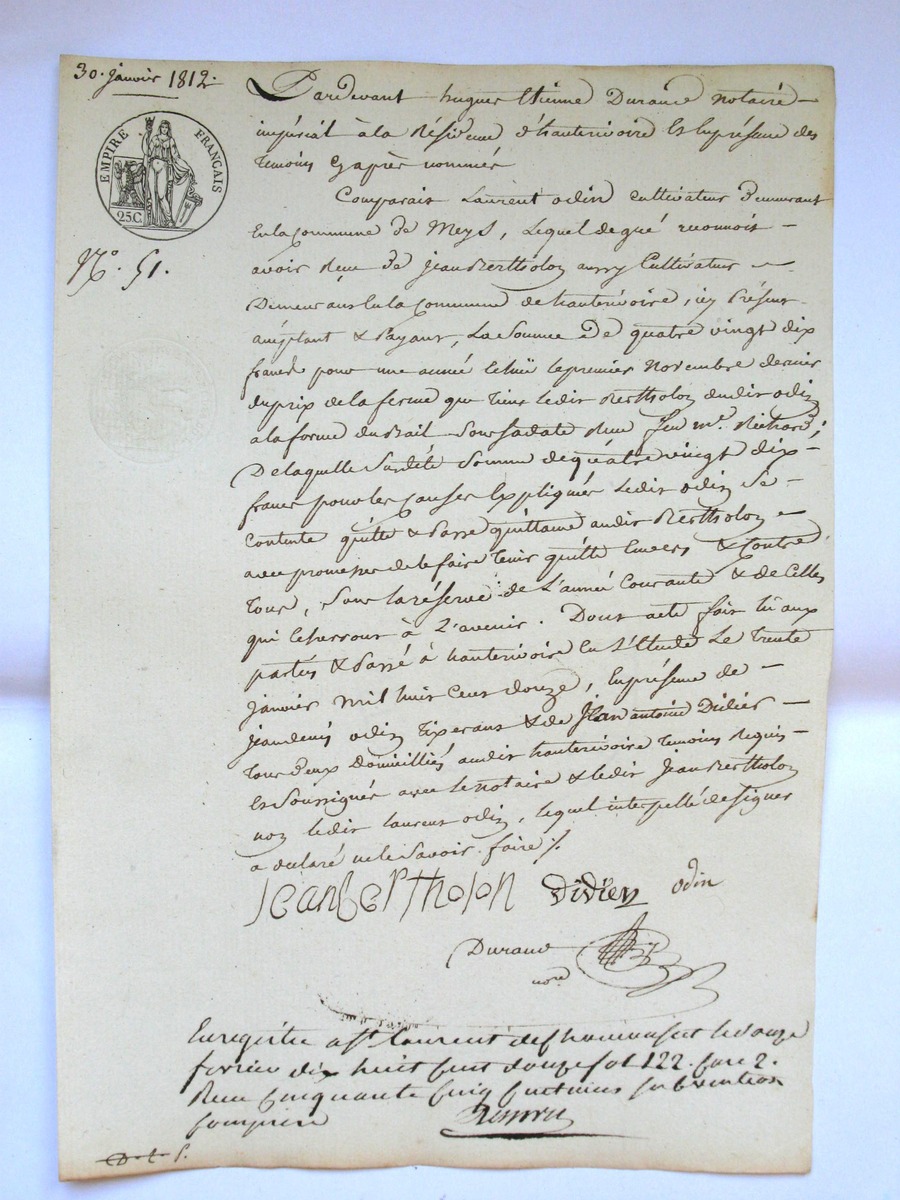 30. janvier 1812.
EMPIRE FRANÇAIS
25C.
N.º 51.
Pardevant hugues Etienne Durand notaire
impérial à la Résidence d'hauterivoire Et En présence des
temoins cy après nommés
Comparait Laurent odin cultivateur demeurant
En la Commune de Meys, Lequel de gré reconnoit
avoir Reçu de jean Bertholon aussy Cultivateur
Demeurant En la Commune de hauterivoire, icy Présent
acceptant & Payant, La Somme de quatre vingt dix
francs pour une année Echüe le premier Novembre dernier
du prix de la ferme que tient ledit Bertholon dudit odin
a la forme du Bail Sous sa date Reçu feu m.e Richard;
De laquelle Susdite Somme de quatre vingt dix
francs pour les Causes Expliquées Ledit odin Se
Contente quitte & Passe quittance audit Bertholon
avec promesses de le faire tenir quitte Envers & Contre
tous, Sous la réserve de L'année Courante & de Celles
qui Echerront à L'avenir. Dont acte fait lu aux
parties & Passé à hauterivoire En l'Etude Le trente
janvier Mil huit Cent douze, En présence de
jean denis odin tixerant & de jean antoine Didier
tous deux Domiciliés audit hauterivoire temoins Requis
Et Soussignés avec le notaire & ledit jean Bertholon
non ledit laurent odin, lequel interpellé de signer
a déclaré ne le Savoir faire ./.
jean berTholon Didier odin
Durand
nore
Enregistré a St. laurent de Chamousset le douze
fevrier dix huit cent douze fol 122. case 2.
Reçu Cinquante Cinq Centimes subvention
Comprise
D. L. S.